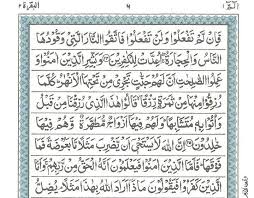 البقرة ٢ ٦ الٓمّٓ ١
فَاِنْ لَّمْ تَفْعَلُوْا وَلَنْ تَفْعَلُوْا فَاتَّقُوا النَّارَ الَّتِىْ وَقُوْدُهَا
النَّاسُ وَالْحِجَارَةُ ۖ اُعِدَّتْ لِلْكٰفِرِيْنَ ۝ وَبَشِّرِ الَّذِيْنَ اٰمَنُوْا وَ
عَمِلُوا الصّٰلِحٰتِ اَنَّ لَهُمْ جَنّٰتٍ تَجْرِىْ مِنْ تَحْتِهَا الْاَنْهٰرُ ۖ كُلَّمَا
رُزِقُوْا مِنْهَا مِنْ ثَمَرَةٍ رِّزْقًا ۙ قَالُوْا هٰذَا الَّذِىْ رُزِقْنَا مِنْ قَبْلُ
وَاُتُوْا بِهٖ مُتَشَابِهًا ۖ وَلَهُمْ فِيْهَآ اَزْوَاجٌ مُّطَهَّرَةٌ ۙ وَّهُمْ فِيْهَا
خٰلِدُوْنَ ۝ اِنَّ اللّٰهَ لَا يَسْتَحْىٖۤ اَنْ يَّضْرِبَ مَثَلًا مَّا بَعُوْضَةً فَمَا
فَوْقَهَا ۖ فَاَمَّا الَّذِيْنَ اٰمَنُوْا فَيَعْلَمُوْنَ اَنَّهُ الْحَقُّ مِنْ رَّبِّهِمْ ۚ وَاَمَّا
الَّذِيْنَ كَفَرُوْا فَيَقُوْلُوْنَ مَاذَآ اَرَادَ اللّٰهُ بِهٰذَا مَثَلًا ۘ يُضِلُّ